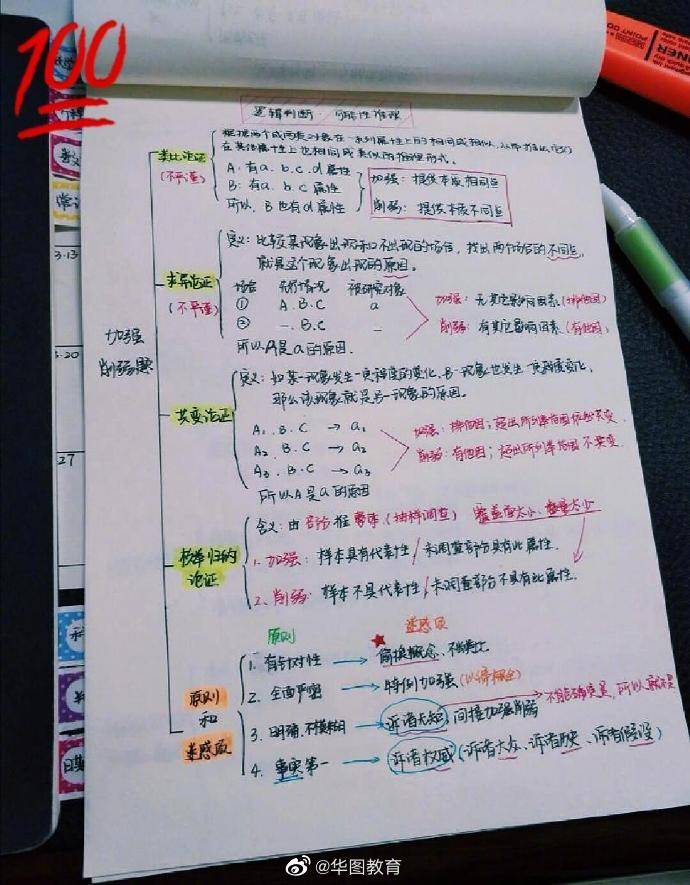 100
逻辑判断 可能性推理
类比论证
(不严谨)
根据两个或两类对象在一系列属性上的相同或相似,从而推出它们
在其他属性上也相同或类似的推理形式。
A:有a.b.c.d属性
B:有a.b.c属性
所以,B也有d属性
加强:提供本质相同点
削弱:提供本质不同点
求异论证
(不严谨)
定义:比较某现象出现和不出现的场合,找出两个场合的不同点,
就是这个现象出现的原因。
场合 先行情况 被研究对象
① A.B.C a
② —.B.C —
所以A是a的原因.
加强:无其它影响因素(排他因)
削弱:有其它影响因素(有他因)
加强
削弱题
共变论证
定义:如某一现象发生一定程度的变化,另一现象也发生一定程度变化,
那么该现象就是另一现象的原因。
A₁.B.C → a₁
A₂.B.C → a₂
A₃.B.C → a₃
所以A是a的原因
加强:排他因;
削弱:有他因;
归纳
论证
含义:由部分推整体(抽样调查)
1.加强:样本具有代表性/未调查部分具有此属性.
2.削弱:样本不具代表性/未调查部分不具有此属性.
原则
和
迷惑项
原则 迷惑项
1.有针对性 → 偷换概念、不当类比
2.全面严密 → 特例加强
3.明确、不模糊 → 诉诸无知,间接加强削弱
4.事实第一 → 诉诸权威(诉诸大众、诉诸历史、诉诸假设)
3.13
3.20
27
@华图教育